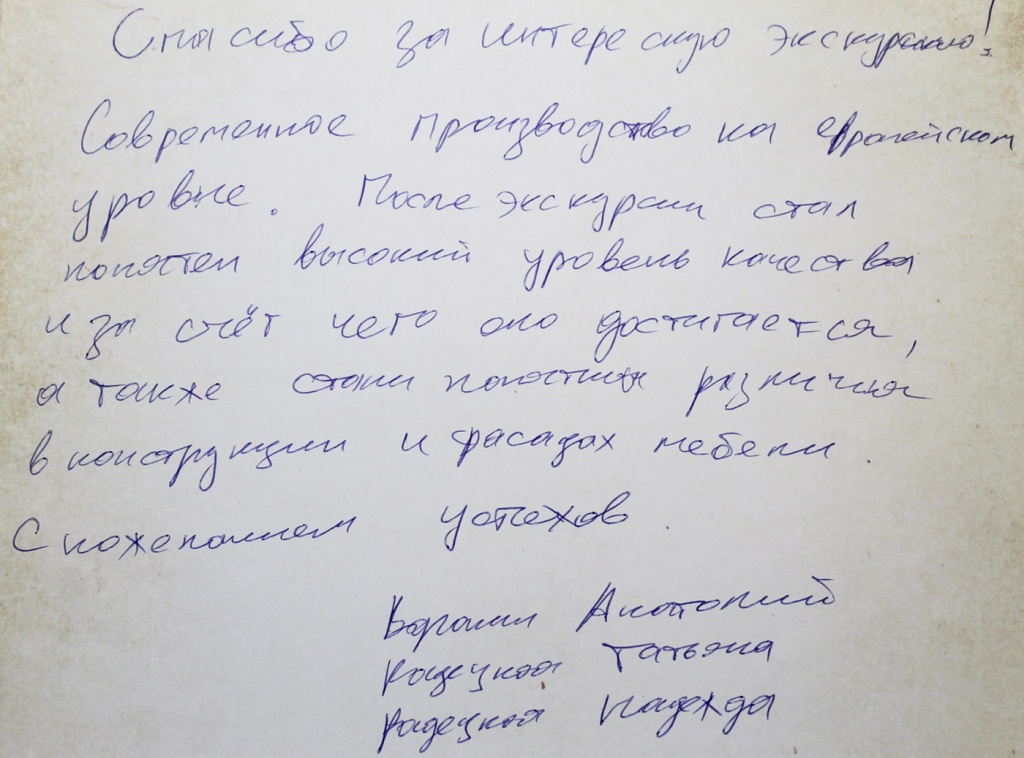 Спасибо за интересную экскурсию!
Современное производство на европейском
уровне. После экскурсии стал
понятен высокий уровень качества
и за счёт чего оно достигается,
а также стали понятны различия
в конструкции и фасадах мебели.
С пожеланием успехов.
Анатолий
Радецкая Татьяна
Радецкая Надежда